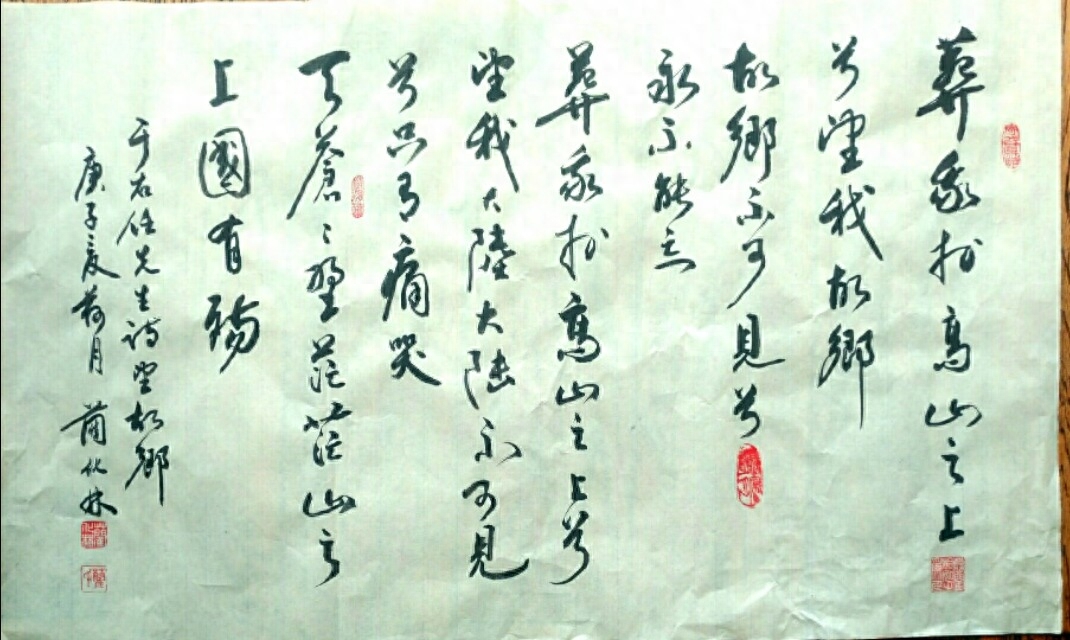 葬我扵高山之上
兮望我故鄉
故鄉不可見兮
永不能忘
葬我扵高山之上兮
望我大陸大陸不可見
兮只有痛哭
天蒼々野茫茫山之
上國有殤
于右任先生詩望故鄉
庚子夏荷月 化林